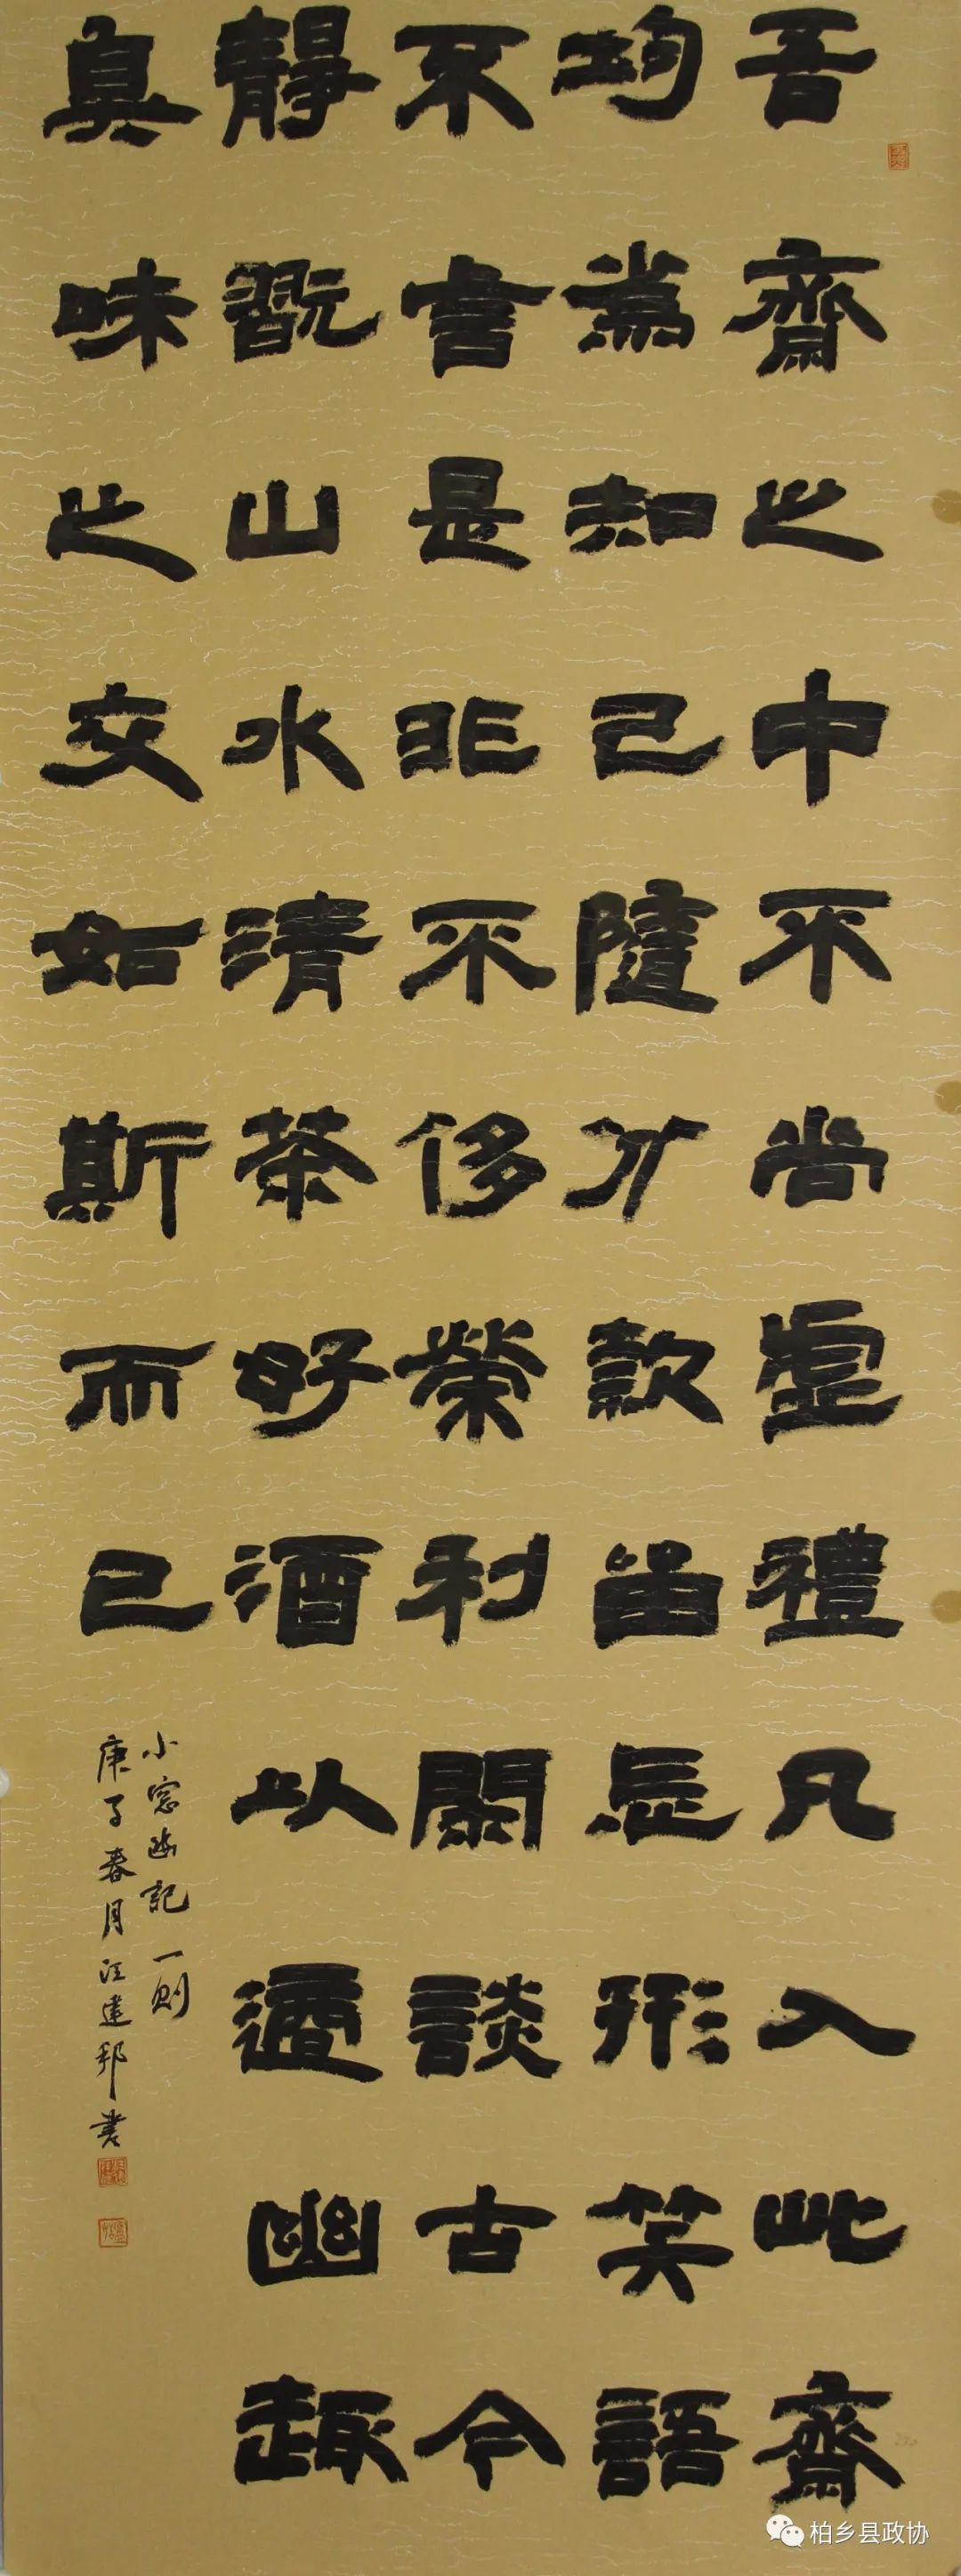 吾齋之中不尚虛禮凡入此齋
均爲知己隨分款留忘形笑語
不言是非不侈榮利閑談古今
靜翫山水清茶好酒以適幽趣
真味之交如斯而已
小窓幽記一則
庚子春月江建邦書
柏乡县政协